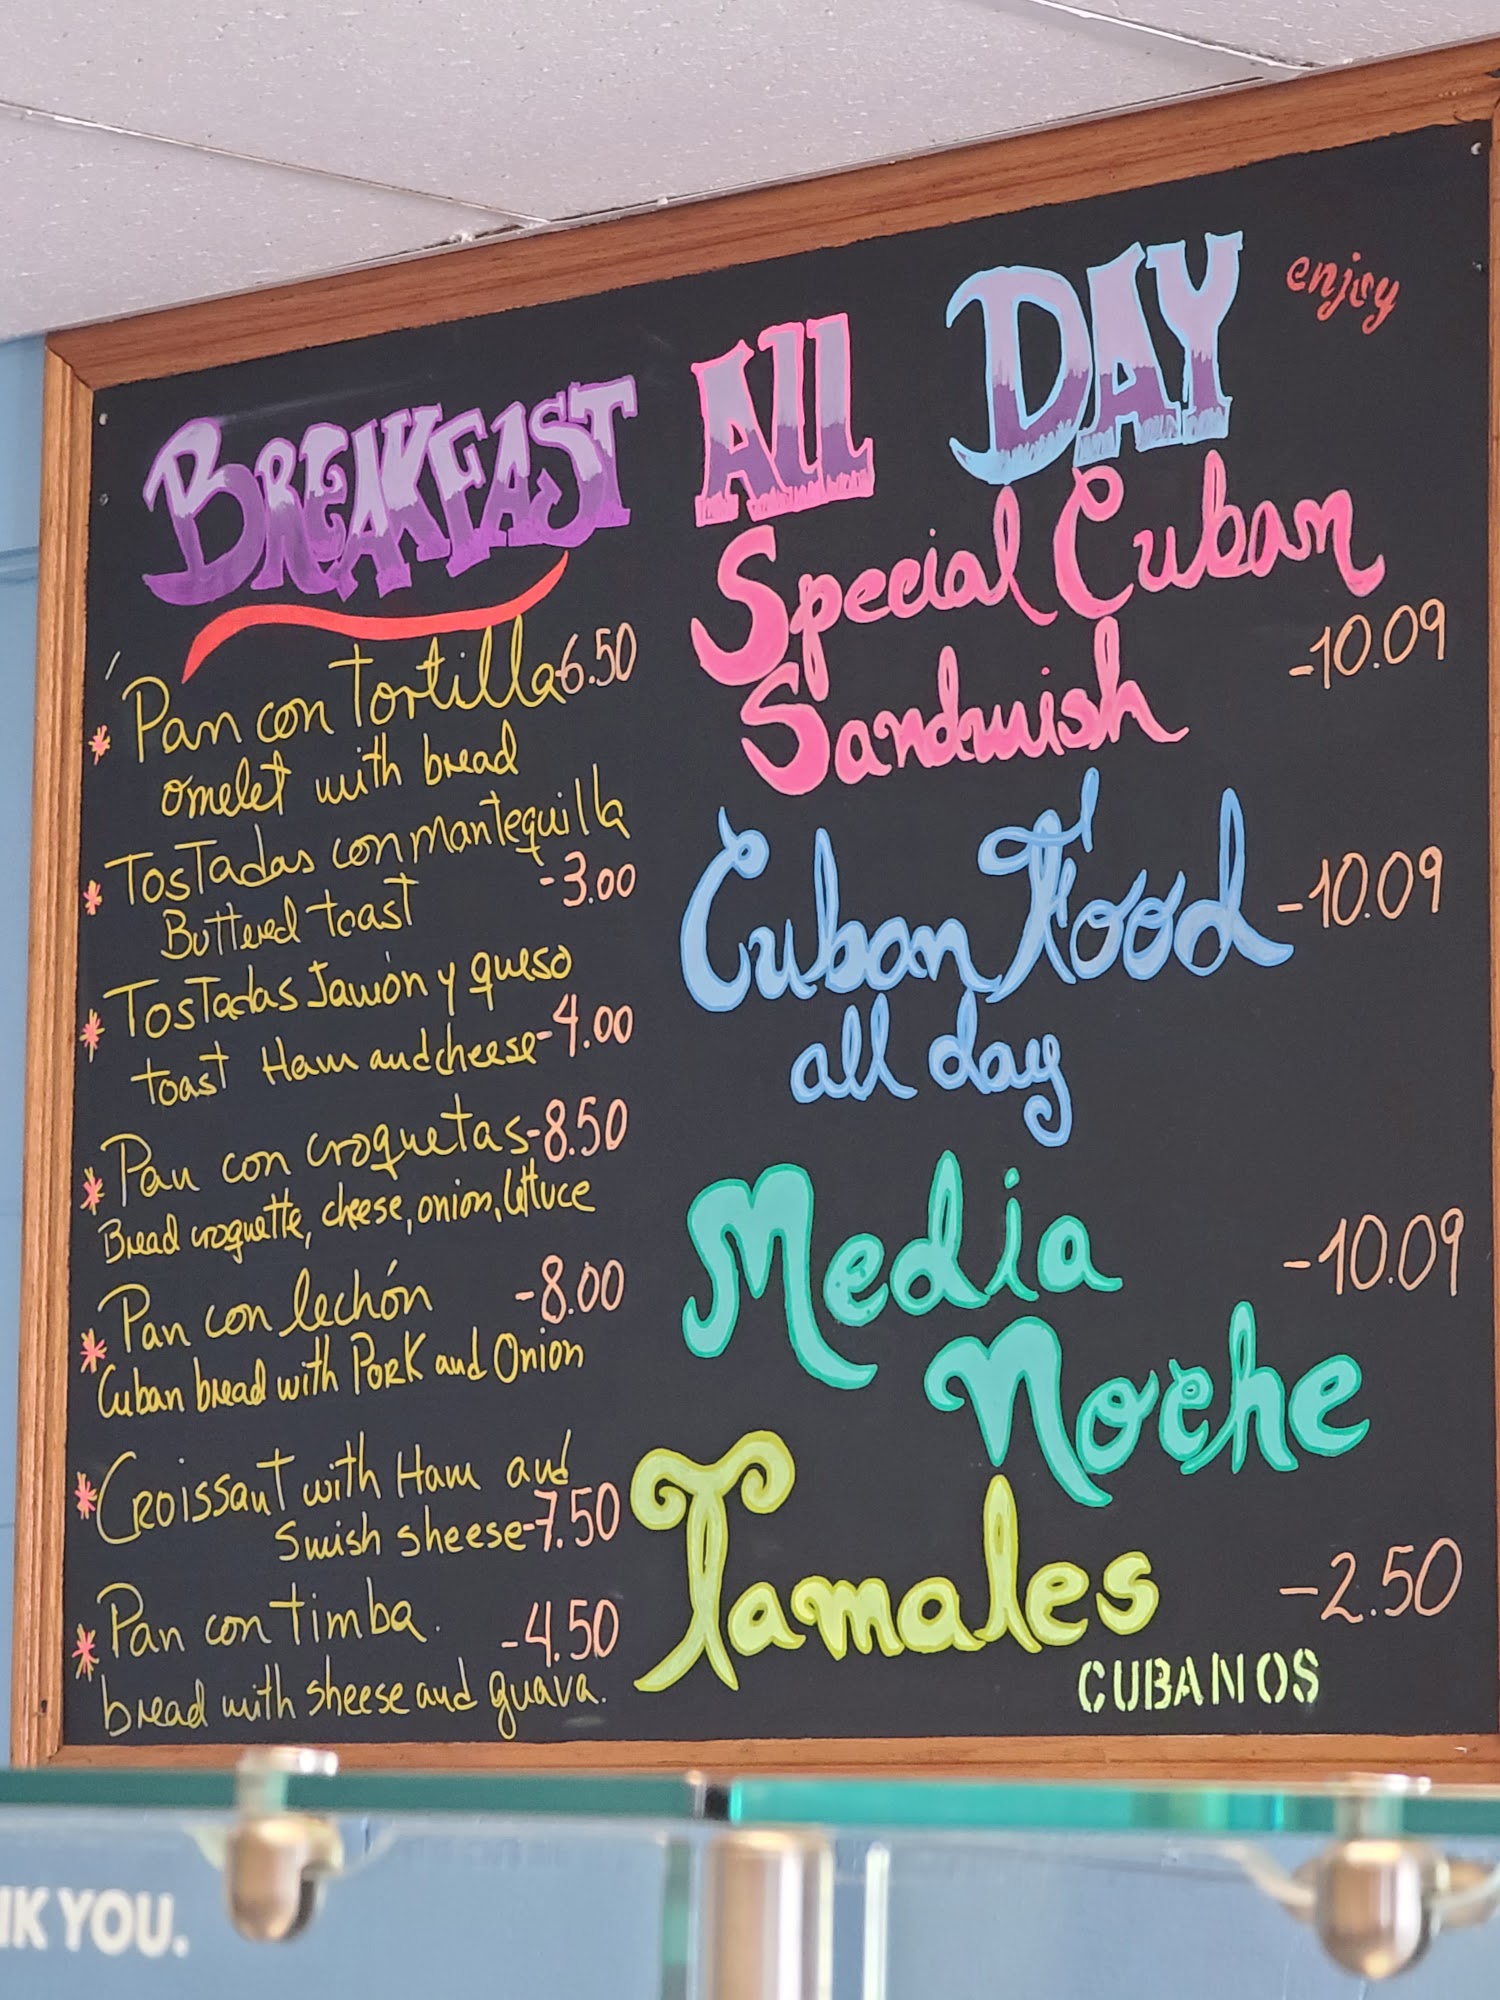 BREAKFAST All DAY enjoy
* Pan con Tortilla -6.50
omelet with bread
* Tostadas con mantequilla
Buttered toast -3.00
* Tostadas Jamón y queso
toast Ham and cheese -4.00
* Pan con croquetas -8.50
Bread croquette, cheese, onion, lettuce
* Pan con lechón -8.00
Cuban bread with Pork and Onion
* Croissant with Ham and
Swish sheese -7.50
* Pan con timba. -4.50
bread with sheese and guava.
Special Cuban
Sandwish -10.09
Cuban Food -10.09
all day
Media -10.09
Noche
Tamales -2.50
CUBANOS
NK YOU.